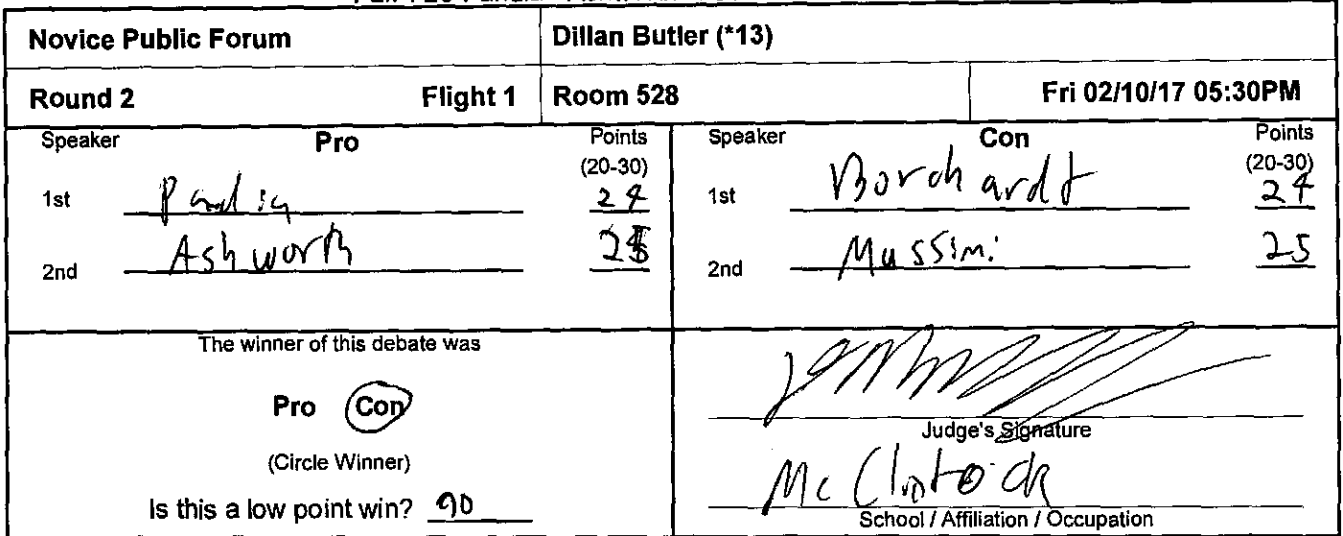 Novice Public Forum
Dillan Butler (*13)
Round 2 Flight 1
Room 528
Fri 02/10/17 05:30PM
Speaker Pro Points
(20-30)
1st 24
2nd Ashworth
Speaker Con Points
(20-30)
1st Borchardt 24
2nd Mussini 25
The winner of this debate was
Pro Con
(Circle Winner)
Is this a low point win? no
Judge's Signature
McClintock
School / Affiliation / Occupation